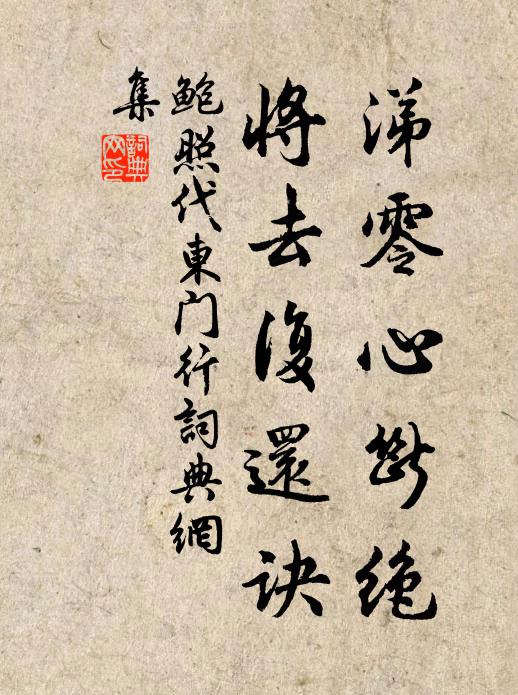 涕零心断絶
将去復還訣
鲍照代東门行詞典網
集
詞典
网